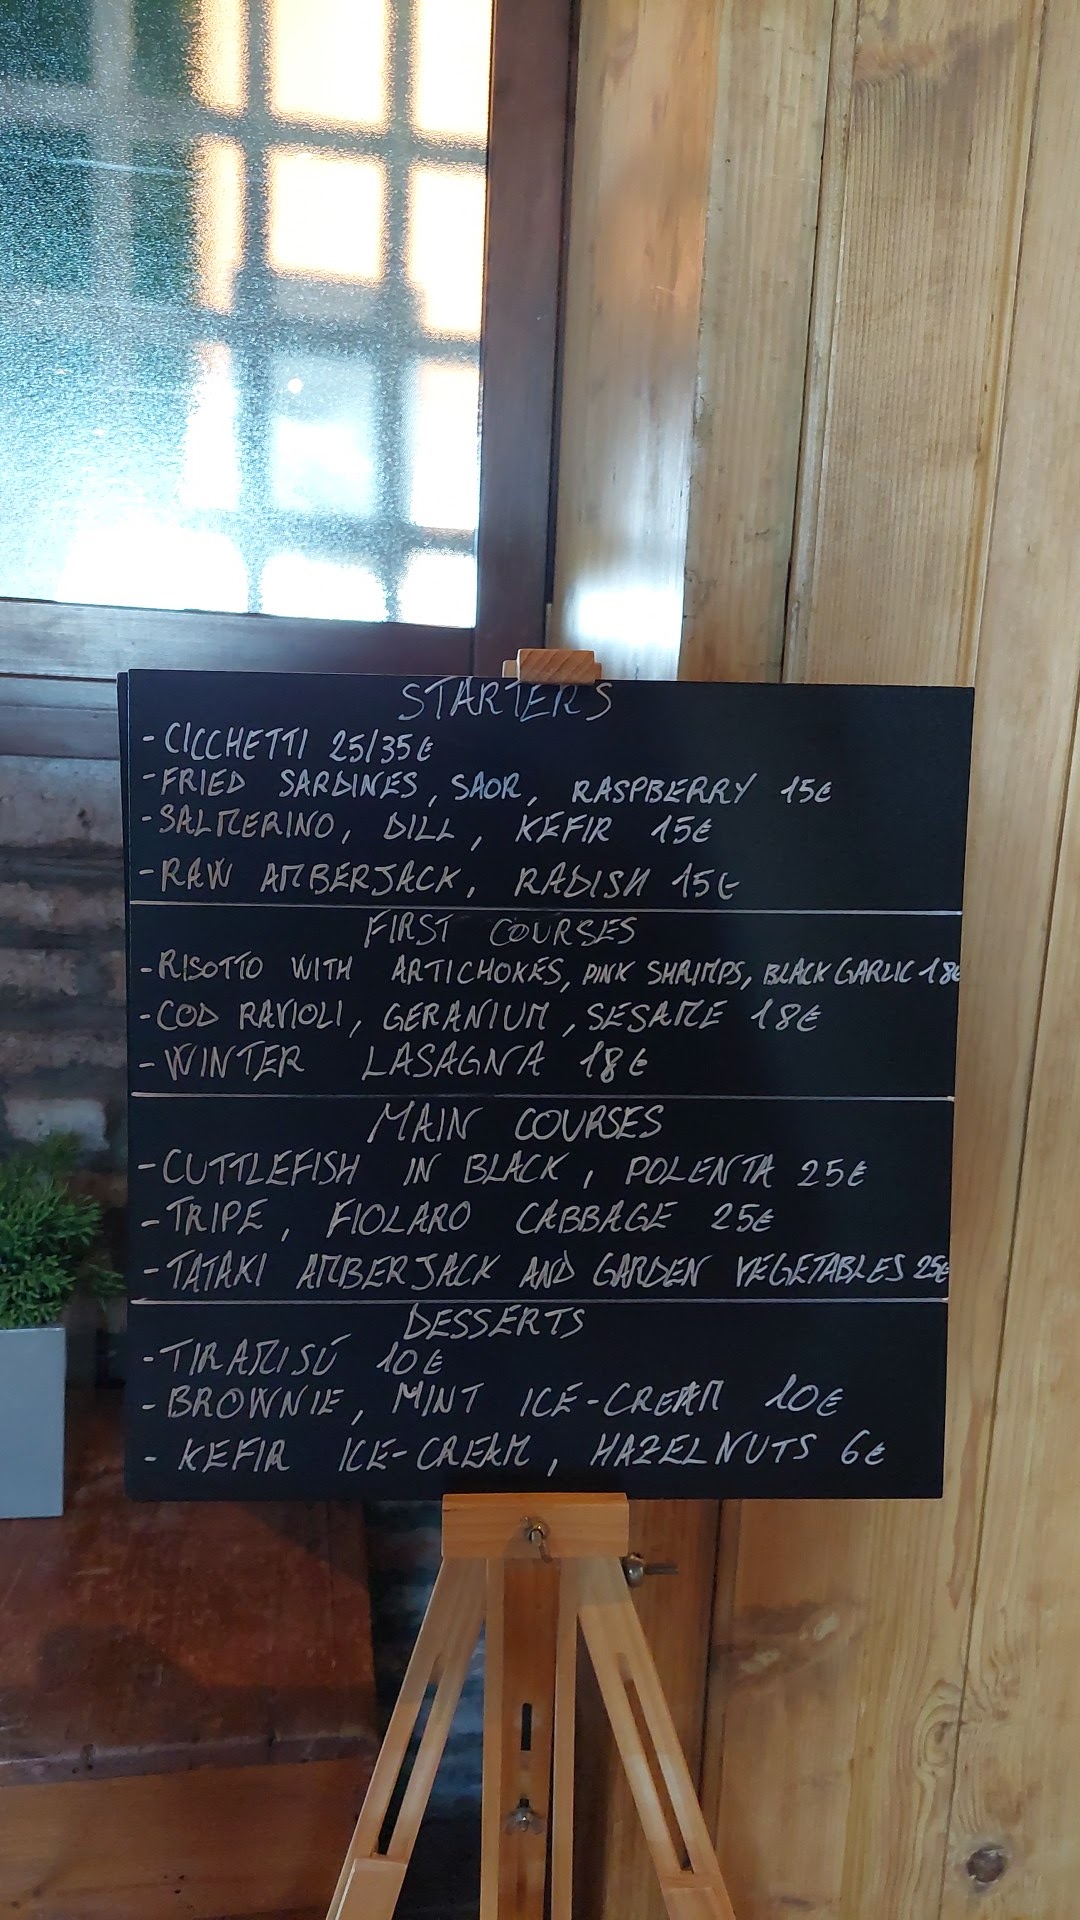 STARTERS
-CICCHETTI 25/35€
-FRIED SARDINES, SAOR, RASPBERRY 15€
-SALMERINO, DILL, KEFIR 15€
-RAW AMBERJACK, RADISH 15€
FIRST COURSES
-RISOTTO WITH ARTICHOKES, PINK SHRIMPS, BLACK GARLIC 18€
-COD RAVIOLI, GERANIUM, SESAME 18€
-WINTER LASAGNA 18€
MAIN COURSES
-CUTTLEFISH IN BLACK, POLENTA 25€
-TRIPE, FIOLARO CABBAGE 25€
-TATAKI AMBERJACK AND GARDEN VEGETABLES 25€
DESSERTS
-TIRAMISÚ 10€
-BROWNIE, MINT ICE-CREAM 10€
- KEFIR ICE-CREAM, HAZELNUTS 6€